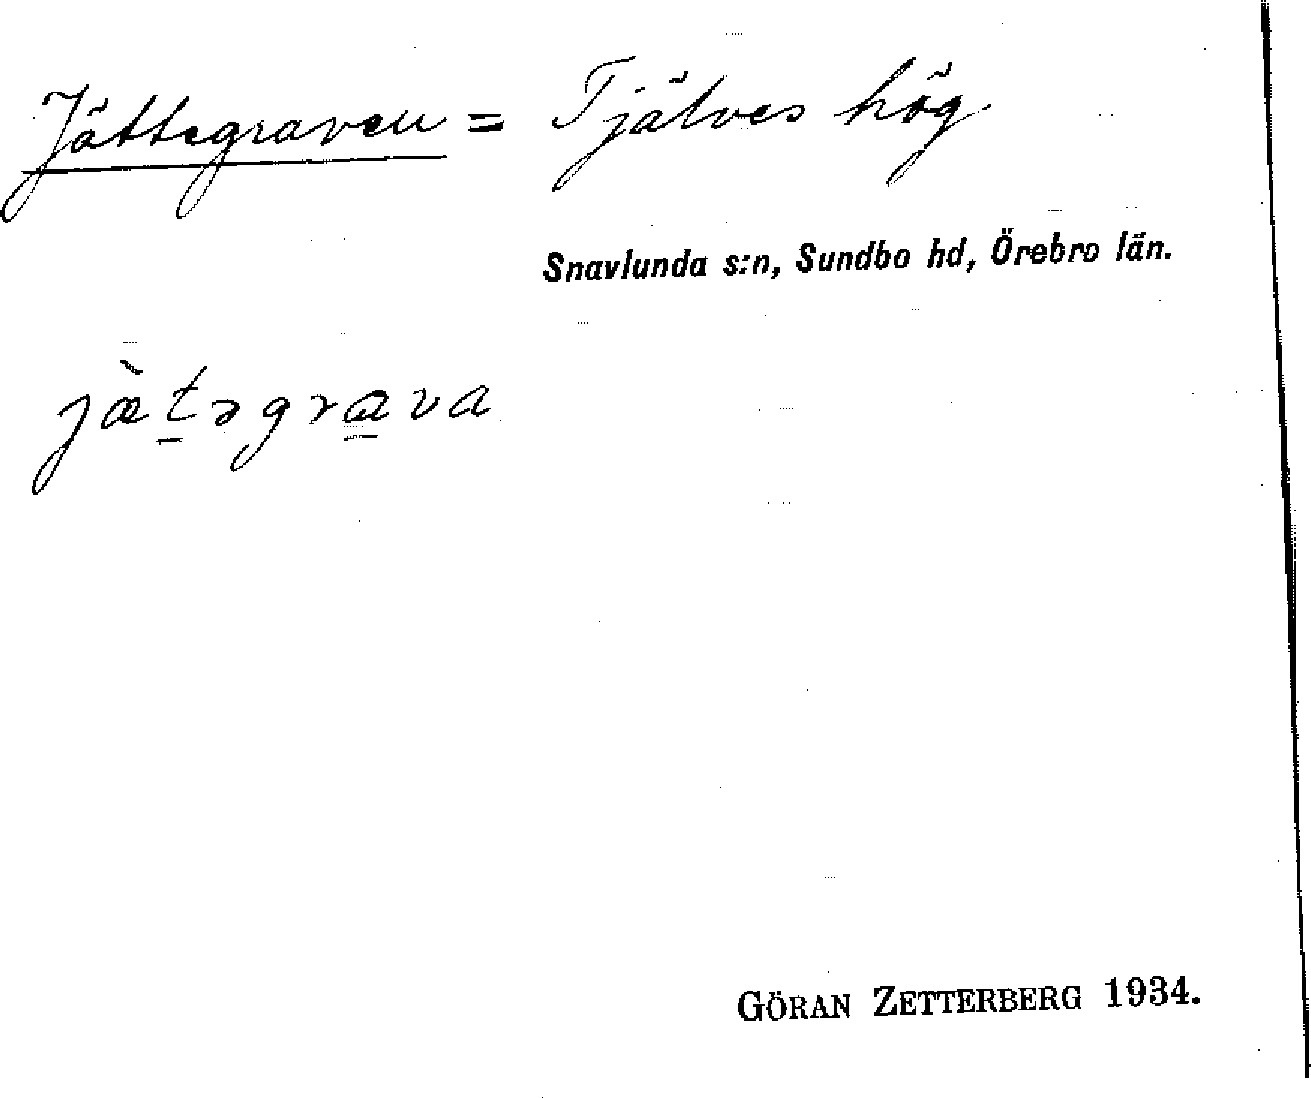 Jättegraven = Tjälves hög
Snavlunda s:n, Sundbo hd, Örebro län.
jæ̀t̠əgra̠va
GÖRAN ZETTERBERG 1934.